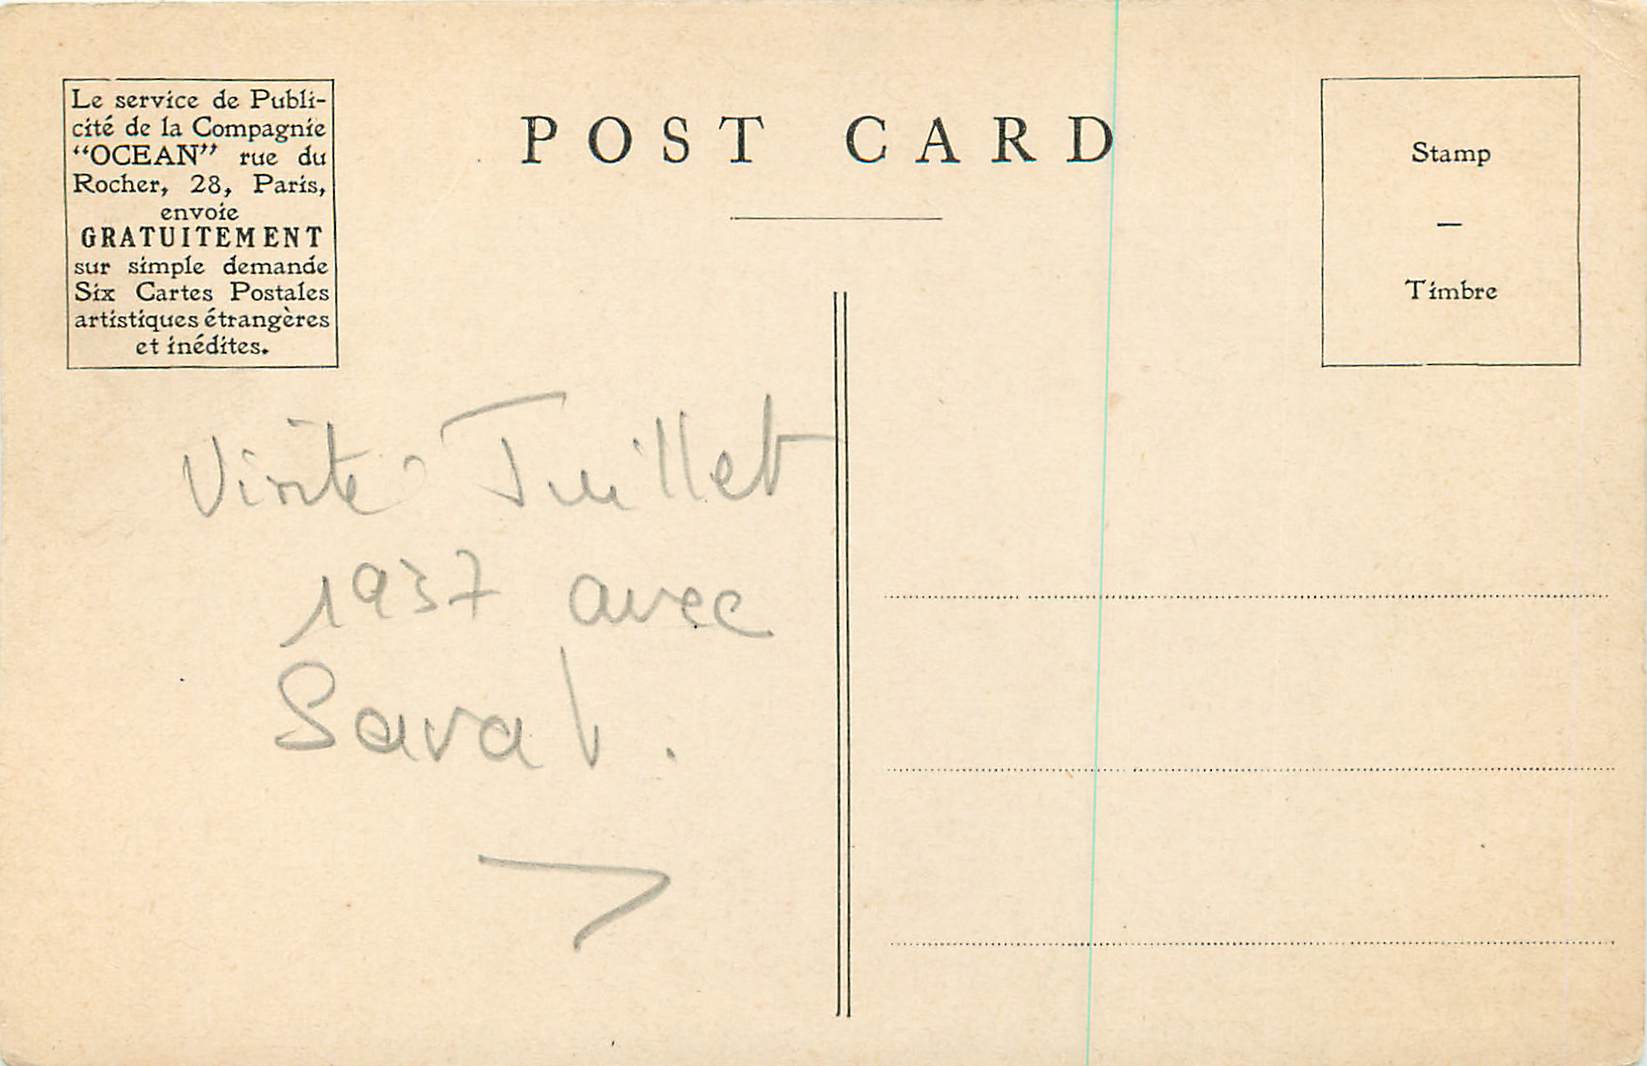 Le service de Publi-
cité de la Compagnie
“OCEAN” rue du
Rocher, 28, Paris,
envoie
GRATUITEMENT
sur simple demande
Six Cartes Postales
artistiques étrangères
et inédites.
POST CARD
Stamp
—
Timbre
Visite Juillet
1937 avec